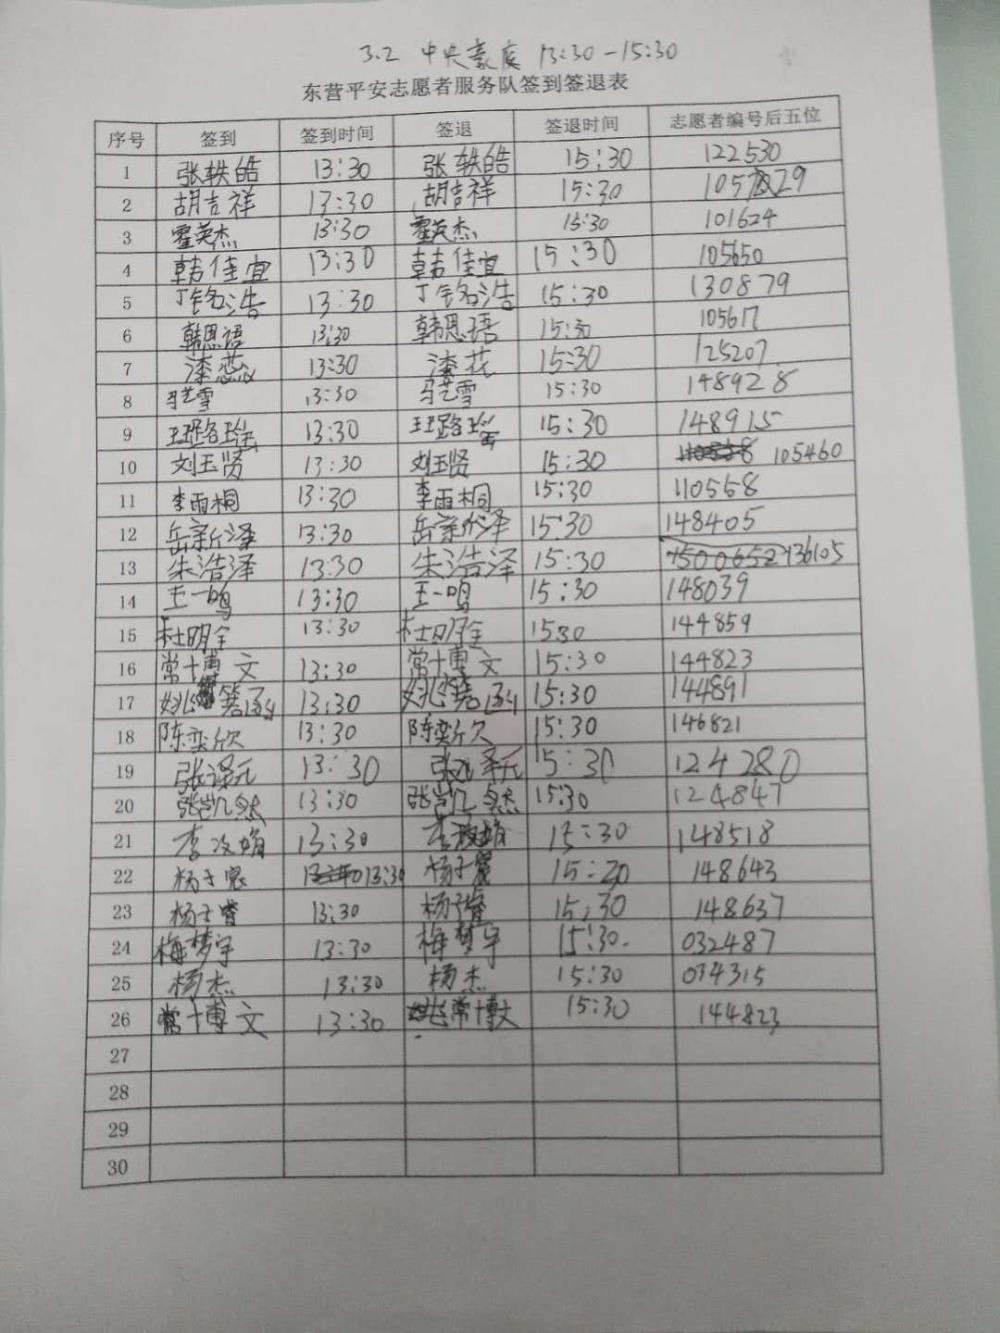 3.2 中央豪庭 13:30-15:30
东营平安志愿者服务队签到签退表
序号 签到 签到时间 签退 签退时间 志愿者编号后五位
1 张轶皓 13:30 张轶皓 15:30 122530
2 胡吉祥 13:30 胡吉祥 15:30
3 霍英杰 13:30 霍英杰 15:30 101624
4 韩佳宜 13:30 韩佳宜 15:30 105650
5 丁铭浩 13:30 丁铭浩 15:30 130879
6 韩思语 13:30 韩思语 15:30 105617
7 漆蕊 13:30 漆花 15:30 125207
8 马艺雪 13:30 马艺雪 15:30 148928
9 王璐瑶 13:30 王璐瑶 15:30 148915
10 刘玉贤 13:30 刘玉贤 15:30 105460
11 李雨桐 13:30 李雨桐 15:30 110558
12 岳新泽 13:30 岳新泽 15:30 148405
13 朱浩泽 13:30 朱浩泽 15:30 136105
14 王一鸣 13:30 王一鸣 15:30 148039
15 杜明全 13:30 杜明全 1530 144859
16 常博文 13:30 常博文 15:30 144823
17 13:30 15:30 144891
18 陈奕欣 13:30 陈奕欣 15:30 146821
19 张泽元 13:30 张泽元 15:30 124280
20 张凯然 13:30 张凯然 15:30 124847
21 13:30 15:30 148518
22 杨子宸 13:30 杨子宸 15:20 148643
23 杨子睿 13:30 杨子睿 15:30 148637
24 梅梦宇 13:30 梅梦宇 15:30. 032487
25 杨杰 13:30 杨杰 15:30 034315
26 常博文 13:30 常博文 15:30 144823
27
28
29
30